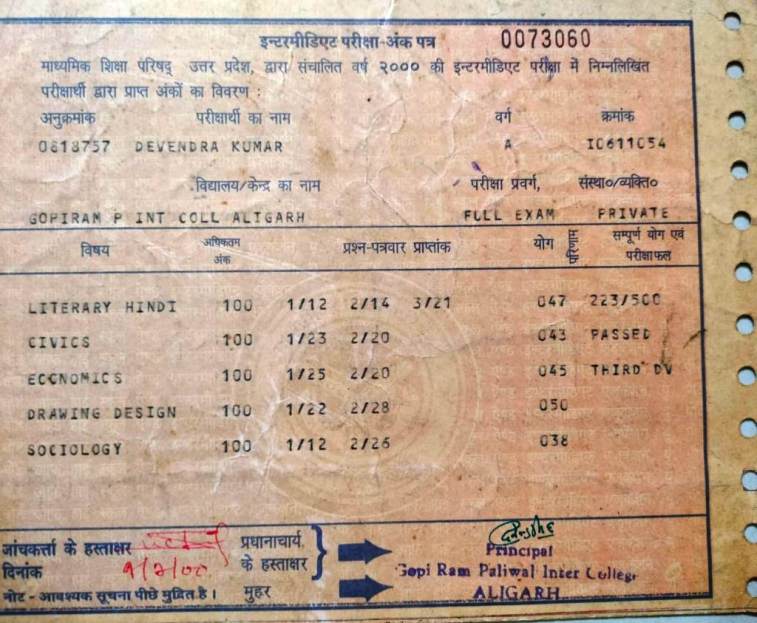 इन्टरमीडिएट परीक्षा-अंक पत्र 0073060
माध्यमिक शिक्षा परिषद् उत्तर प्रदेश, द्वारा संचालित वर्ष २००० की इन्टरमीडिएट परीक्षा में निम्नलिखित
परीक्षार्थी द्वारा प्राप्त अंकों का विवरण :
अनुक्रमांक परीक्षार्थी का नाम वर्ग क्रमांक
0618757 DEVENDRA KUMAR A I0611054
विद्यालय/केन्द्र का नाम परीक्षा प्रवर्ग, संस्था०/व्यक्ति०
GOPIRAM P INT COLL ALIGARH FULL EXAM PRIVATE
विषय अधिकतम अंक प्रश्न-पत्रवार प्राप्तांक योग परिणाम सम्पूर्ण योग एवं परीक्षाफल
LITERARY HINDI 100 1/12 2/14 3/21 047 223/500
CIVICS 100 1/23 2/20 043 PASSED
ECONOMICS 100 1/25 2/20 045 THIRD DV
DRAWING DESIGN 100 1/22 2/28 050
SOCIOLOGY 100 1/12 2/26 038
जांचकर्त्ता के हस्ताक्षर प्रधानाचार्य Principal
दिनांक के हस्ताक्षर Gopi Ram Paliwal Inter College
नोट - आवश्यक सूचना पीछे मुद्रित है। मुहर ALIGARH